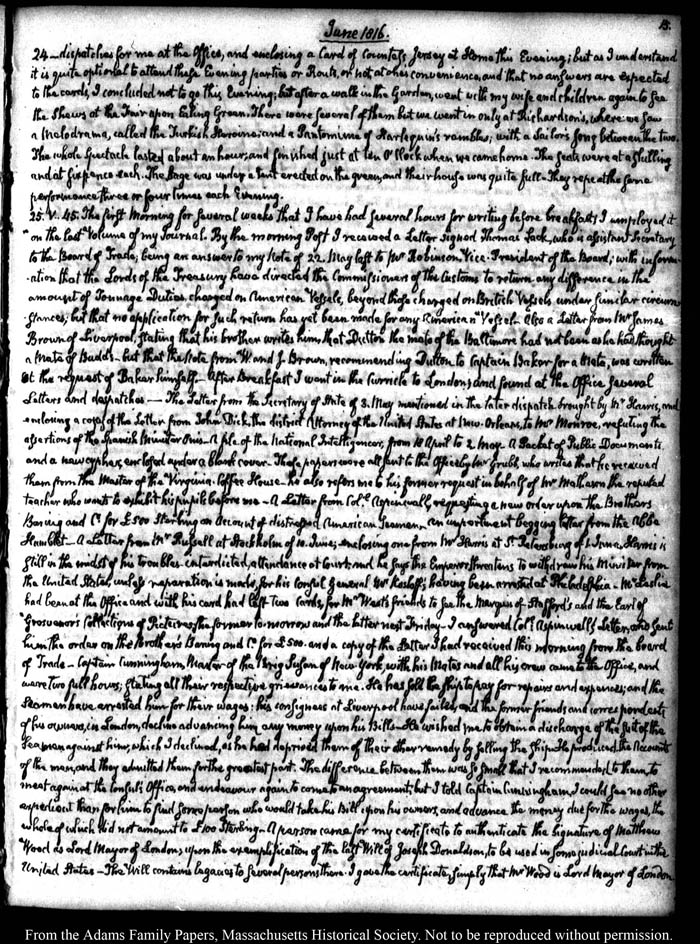 June 1816.
24_ dispatches for me at the Office, and enclosing a Card of Countess Jersey at Home this Evening; but as I understand
it is quite optional to attend these Evening parties or Routs, or not at ones convenience, and that no answers are expected
to the cards, I concluded not to go this Evening; but after a walk in the Garden, went with my wife and children again to see
the Shews at the Fair upon Ealing Green. There were several of them but we went in only at Richardson's, where we saw
a Melodrama, called the Turkish Heroine; and a Pantomime of Harlequin's rambles, with a Sailor's song between the two.
The whole Spectacle lasted about an hour, and finished just at ten O'Clock when we came home. The Seats were at a shilling
and at sixpence each. The Stage was under a tent erected on the green, and their house was quite full_ They repeat the same
performance three or four times each Evening.
25. V. 45. The first Morning for several weeks that I have had several hours for writing before breakfast; I employed it
on the last Volume of my Journal. By the morning Post I received a Letter signed Thomas Lack, who is assistant Secretary
to the Board of Trade; being an answer to my Note of 22. May last to Mr Robinson Vice-President of the Board; with inform-
-ation that the Lords of the Treasury have directed the Commissioners of the Customs to return any difference in the
amount of Tonnage Duties charged on American Vessels, beyond those charged on British Vessels under similar circum-
-stances; but that no application for such return has yet been made for any American Vessel_ Also a Letter from Mr James
Brown of Liverpool, stating that his brother writes him, that Dutton the mate of the Baltimore had not been as he had thought
a Mate of Budd's_ but that the Note from W. and J. Brown, recommending Dutton to Captain Baker for a Mate, was written
at the request of Baker himself_ After Breakfast I went in the Curricle to London; and found at the Office several
Letters and despatches_ The Letter from the Secretary of State of 3. May mentioned in the later dispatch brought by Mr Harris, and
enclosing a copy of the Letter from John Dick the district Attorney of the United States at New-Orleans, to Mr Monroe, refuting the
assertions of the Spanish Minister Onis_ A file of the National Intelligencer, from 18 April to 2 May. A Packet of Public Documents
and a new cypher, enclosed under a blank cover. These papers were all sent to the Office by Mr Grubb, who writes that he received
them from the Master of the Virginia Coffee-House. he also refers me to his former request in behalf of Mr Matheson the reputed
teacher who wants to exhibit his pupils before me_ A Letter from Coll. Aspinwall, requesting a new order upon the Brothers
Baring and Co for £500 Sterling on Account of distressed American Seamen. An impertinent begging letter from the Abbé
_ A Letter from Mr Russell at Stockholm of 10. June; enclosing one from Mr Harris at St. Petersburg of 1. June. Harris is
still in the midst of his troubles_ interdicted, attendance at Court; and he says the Emperor threatens to withdraw his Minister from
the United States, unless reparation is made, for his Consul General Mr Kosloff's having been arrested at Philadelphia_ Mr Leslie
had been at the Office and with his card had left Two Cards, for Mr West's friends to see the Marquis of Stafford's and the Earl of
Grosvenor's Collections of Pictures, the former to-morrow and the latter next Friday_ I answered Coll. Aspinwall's Letter, and sent
him the order on the Brothers Baring and Co for £500. and a copy of the Letter I had received this morning from the board
of Trade_ Captain Cunningham, Master of the Brig Susan of New York, with his Mates and all his crew came to the Office, and
were two full hours; stating all their respective grievances to me. He has sold the ship to pay for repairs and expences; and the
Seamen have arrested him for their wages: his consignees at Liverpool have failed, and the former friends and correspondents
of his owners, in London, decline advancing him any money upon his Bills_ He wished me to obtain a discharge of the suit of the
Seamen against him; which I declined, as he had deprived them of their other remedy by selling the ship. He produced the Accounts
of the men, and they admitted them for the greatest part. The difference between them was so small that I recommended to them, to
meet again at the Consul's Office, and endeavour again to come to an agreement; but I told Captain Cunningham, I could see no other
expedient than for him to find some person who would take his Bill upon his owners, and advance the money due for the wages, the
whole of which did not amount to £100 Sterling_ A person came for my certificate to authenticate the signature of Matthew
Wood as Lord Mayor of London, upon the exemplification of the last Will of Joseph Donaldson, to be used in some judicial Court in the
United States_ The Will contains legacies to several persons there. I gave the certificate, simply that Mr Wood is Lord Mayor of London
From the Adams Family Papers, Massachusetts Historical Society. Not to be reproduced without permission.